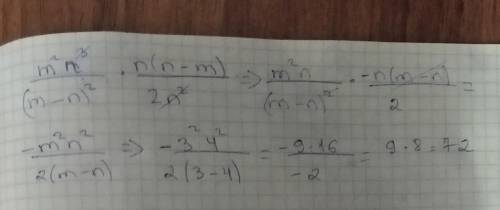 m²n³/(m-n)² · n(n-m)/2n² ⇒ m²n/(m-n)² · -n(m-n)/2 =
-m²n²/2(m-n) ⇒ -3²4²/2(3-4) = -9·16/-2 = 9·8=72